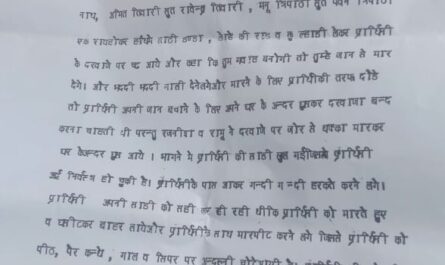 नाथ, अमित तिवारी सुत राघवेन्द्र तिवारी, मनू त्रिपाठी सुत पवन त्रिपाठी
एक रायहोकर हाँथमे लाठी डण्डा, लोहे की राड व कुल्हाडी लेकर प्रार्थिनी
के दरवाजे पर चढ आये और कहा कि तुम गवाह बनोगी तो तुम्हे जान से मार
देगे। और भददी भददी गाली देनेलगेऔर मारने के लिए प्रार्थिनीकी तरफ दौडे
तो प्रार्थिनी अपनी जान बचाने के लिए अपने घर के अन्दर घुसकर दरवाजा बन्द
करना चाहती थी परन्तु रजनीश व रामू ने दरवाजे पर जोर से धक्का मारकर
घर केअन्दर घुस आये। भागने मे प्रार्थिनी की साडी खुल गईजिससे प्रार्थिनी
अर्द्ध निर्वस्त्र हो चुकी है। प्रार्थिनीके पास आकर गन्दी गन्दी हरकते करने लगे।
प्रार्थिनी अपनी साडी को सही कर ही रही थीकि प्रार्थिनी को मारते हुए
व घसीटकर बाहर लायेऔर प्रार्थिनीके साथ मारपीट करने लगे जिससे प्रार्थिनी को
पीठ, पैर कन्धे, गाल व सिपर पर अन्दरूनी चोटेआयी है।